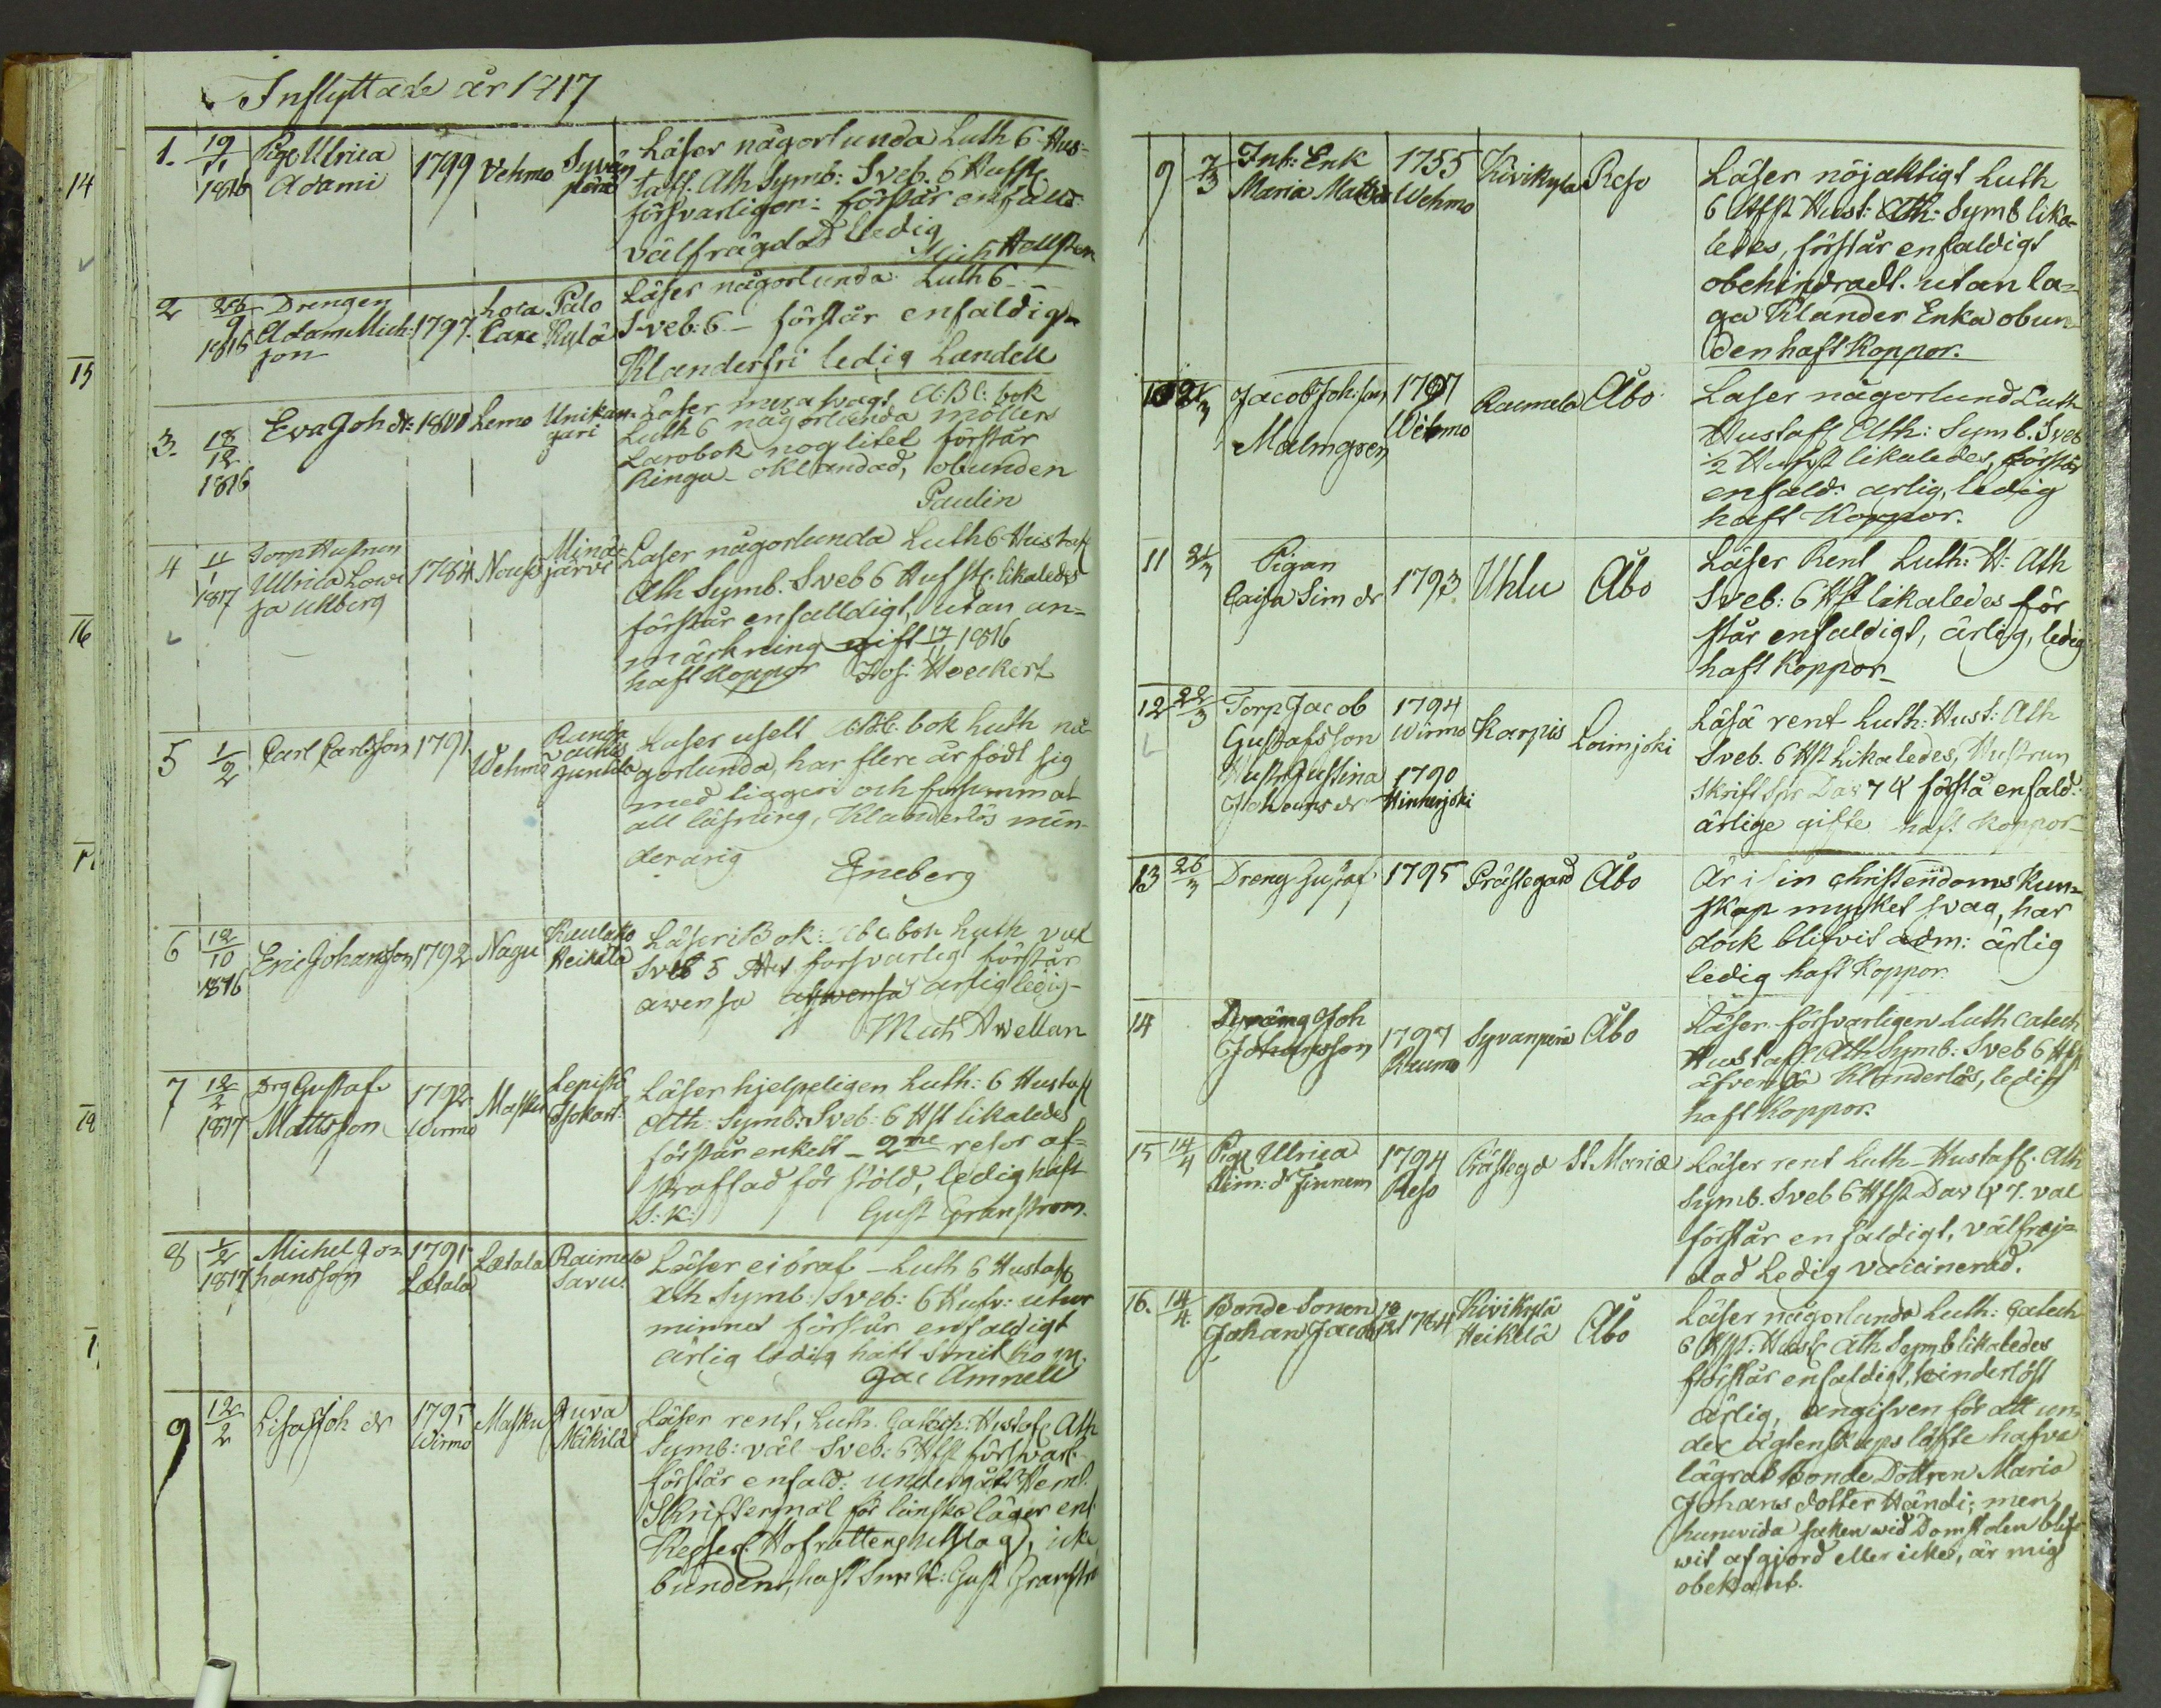 Inflyttade år 1817
1. 19/11 1816 Pig Ulrica Adami 1799 Vehmo Syvänperä
Läser någorlunda Luth 6 Hus-
taff. Ath Symb: Sveb. 6 Hufst.
försvarligen: förstår enfald.
välfrägdad ledig
Mich Hellsten
2 1816 Drengen Adam Mich:son 1797. Palo Kylä
Läser någorlunda Luth 6 -
Sveb: 6 - förstår enfaldig-
Klanderfri ledig Landell
3. 18/12 1816 Eva Joh dr: Lemo Unikan gari
Läser mera svagt, A:B:C: bok
Luth 6 någorlunda möllers
Larobok nog litet förstår
Ringa - oklandad, obunden
Paulin
4 11/1 1817 Torp Hustrun Ulrica Lowisa Ullberg 1784 Nousis Minäjärvi
Laser någorlunda Luth 6 Hustaf
Ath Symb. Sveb 6 Hufst. likaledes
förstår enfalldigt, utan an-
märkning gift 17/11 1816
haft Koppor Hoeckert
5 1/2 Carl Carlsson 1791 Wehmo Juntila
Laser uselt ABC. bok Luth nå-
gorlunda, har flere år födt sig
med tiggeri och försummat
all läsning, Klanderlös min-
derårig
Eneberg
6 12/10 1816 Eric Johansson 1792 Nagu Heikilä
Läser i Bok: Abc. bok Luth väl
Sveb 5 Hst försvarligt förstår
awensa ärlig ledig-
Mich Awellan
7 12/2 1817 Drg Gustaf Mattsson 1792 Wirmo Masku Lepistö
Läser hjelpeligen Luth: 6 Hustaf
Ath: Symb: Sveb: 6 Hst likaledes
förstår enkelt - 2ne resor af-
straffad för stöld, ledig haft
S: K: Gust Granstrom.
8 1/2 1817 Michel Johansson 1791 Letala Letala Raimela Savu.
Läser ei braf - Luth 6 Hustaf
Ath Symb: Sveb: 6 Hufv: utur
minnet förstår enfaldigt
ärlig ledig haft Smit ko p.
Jac Amnell
9 12/2 Lisa Joh dr 1795 Wirmo Masku Juva Mäkilä
Läser rent, Luth. Catech: Hustaf Ath
Symb: väl Sveb: 6 Hst försvarl.
förstår enfald: undergått Heml.
Skriftermål för länska läger enl.
Keyserl. Hofrättens utslag, icke
bunden, haft Sm K: Gust Granstr
14
15
16
9 7/3 Inh: Enk Maria Matts 1755 Wehmo Kivikyla Reso
Läser nöjaktigt Luth
6 Hfst Hust: Ath: Symb lika-
ledes, förstår enfaldigt
obehindradt. utan la-
ga Klander Enka obun-
den haft Koppor.
10 21/3 Jacob Joh: son Malmgren 1797 Wehmo Raumala Åbo
Laser någorlund Luth
Hustaf Ath: Symb. Sveb
1/2 Hufst likaledes, förstår
enfald: ärlig, ledig
haft Koppor.
11 21/3 Pigan Caisa Sim dr 1793 Uhlu Åbo
Läser Rent Luth: H: Ath
Sveb: 6 Hst likaledes för
står enfaldigt, ärlig, ledig
haft Koppor-
12 22/3 Torp Jacob Gustafsson 1794 Wirmo Karpis Loimjoki
Hustr Justina Johans dr 1790 Hinherjoki
Läsa rent Luth: Hust: Ath
Sveb. 6 Hst Likaledes, Hustrun
Skrift spr Dav 7 Ψ förstå enfald:
ärlige gifte haft Koppor-
13 26/3 Dreng Gustaf 1795 Prästegård Åbo
Är i sin christendoms Kun-
skap mycket svag, har
dock blifvit adm: ärlig
ledig haft Koppor.
14 Dräng Joh Johansson 1797 Raumo Syvanperä Åbo
Läser försvarligen Luth Catech
Hustaf: Ath Symb: Sveb 6 Hfst
äfvenså Klanderlös, ledig
haft Koppor.
15 14/4 Pig Ulrica Sim: dr Finnem 1794 Reso Prästegd St Mariæ
Läser rent Luth - Hustaf. Ath
Symb. Sveb 6 Hfst Dav Ψ 7. väl
förstår enfaldigt, välfrej-
dad Ledig vaccinerad.
16. 14/4 Bonde Sonen Johan Jacobs 1784 Kivikylä Heikilä Åbo
Läser någorlunda Luth: Catech
6 Hst: Hust: Ath Symb likaledes
förstår enfaldigt, hinderlöst
ärlig, angifven för att un-
der ägtenskaps löfte hafva
lägrat bonde Dottren Maria
Johans dotter Händi; men
huruvida saken wid Domstolen blif-
wit afgjord eller icke, är mig
obekant.